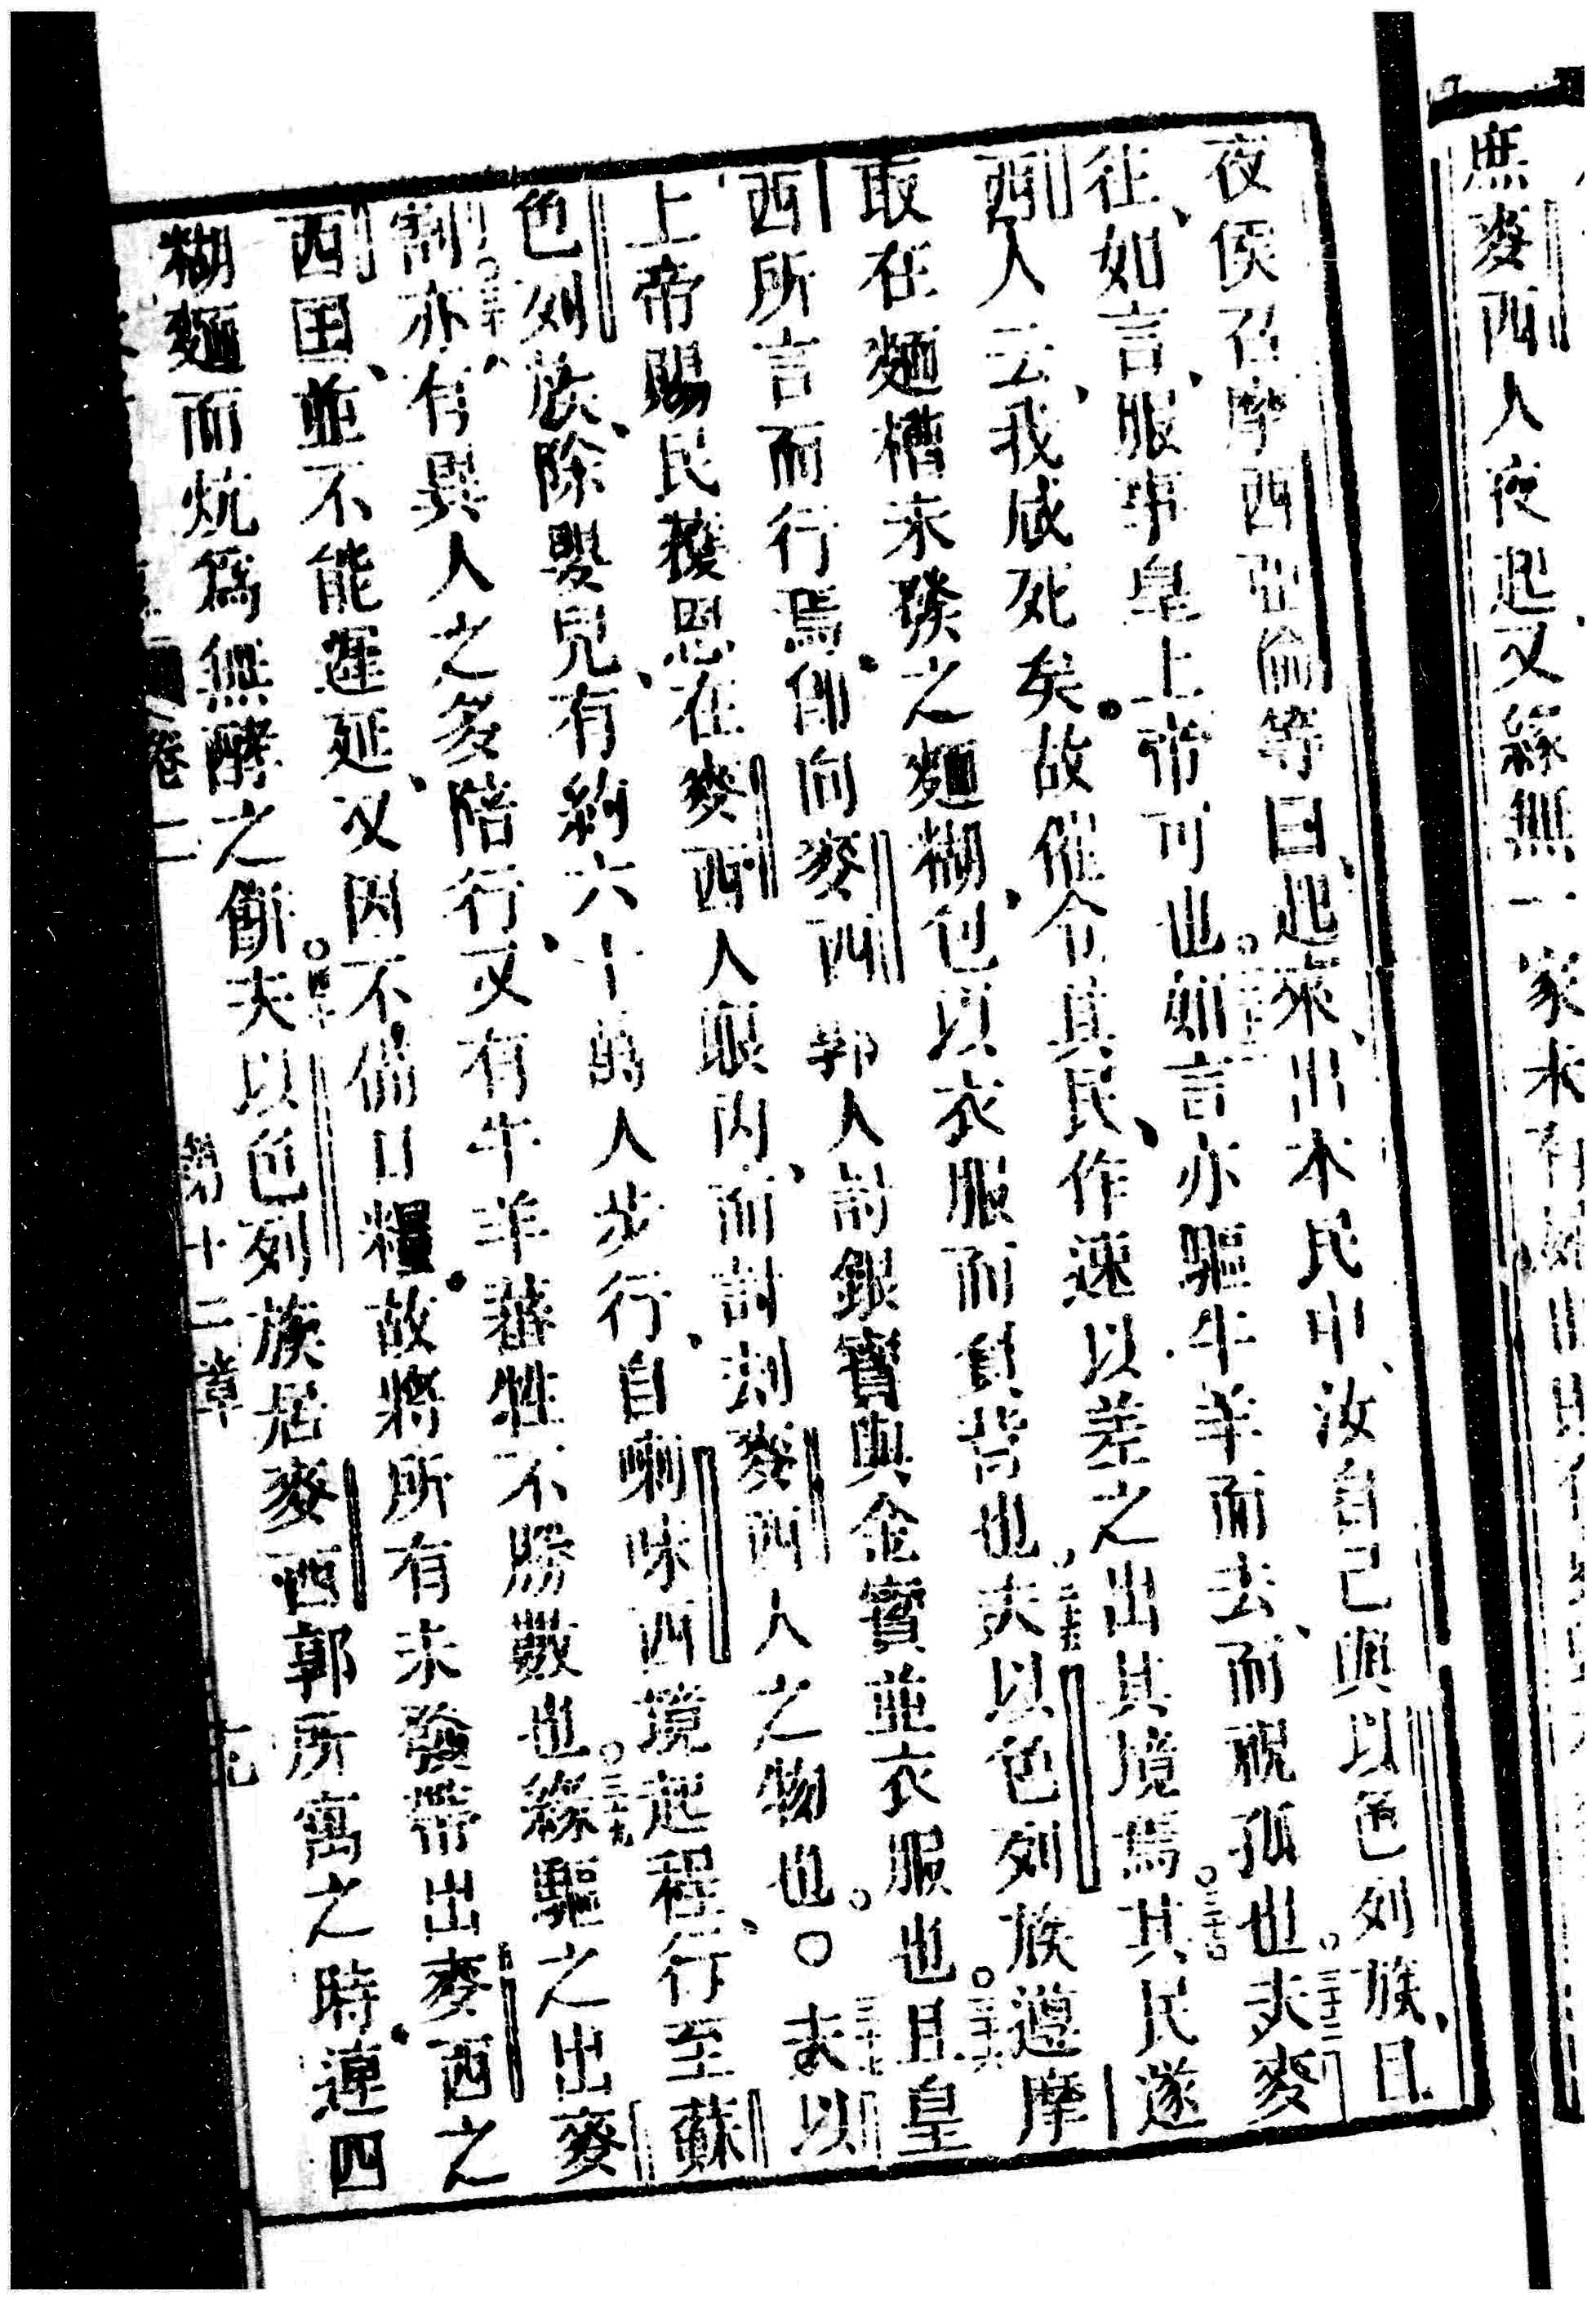 庶麥西人夜起又緣無一家未有
夜侯召摩西亞倫等曰起來出本民中汝自己與以色列族且
往如言服事皇上帝可也○三十二如言亦驅牛羊而去而祝孤也○三十三夫麥
西人云我咸死矣故催令其民作速以差之出其境焉○三十四其民遂
取在麵槽未發之麵糊包以衣服而對背也○三十五夫以色列族遵摩
西所言而行焉卽向麥西郭人討銀寶與金寶並衣服也○三十六且皇
上帝賜民穫恩在麥西人眼內而討刮麥西人之物也○三十七夫以
色列族除嬰兒有約六十萬人步行自喇味西境起程行至蘇
割○三十八亦有異人之多陪行又有牛羊蓄牲不勝數也○三十九緣驅之出麥
西国並不能遲延又因不備口糧故將所有未發帶出麥西之
糊麵而炕爲無酵之餅○四十夫以色列族居麥西郭所寓之時連四
卷二 第十二章